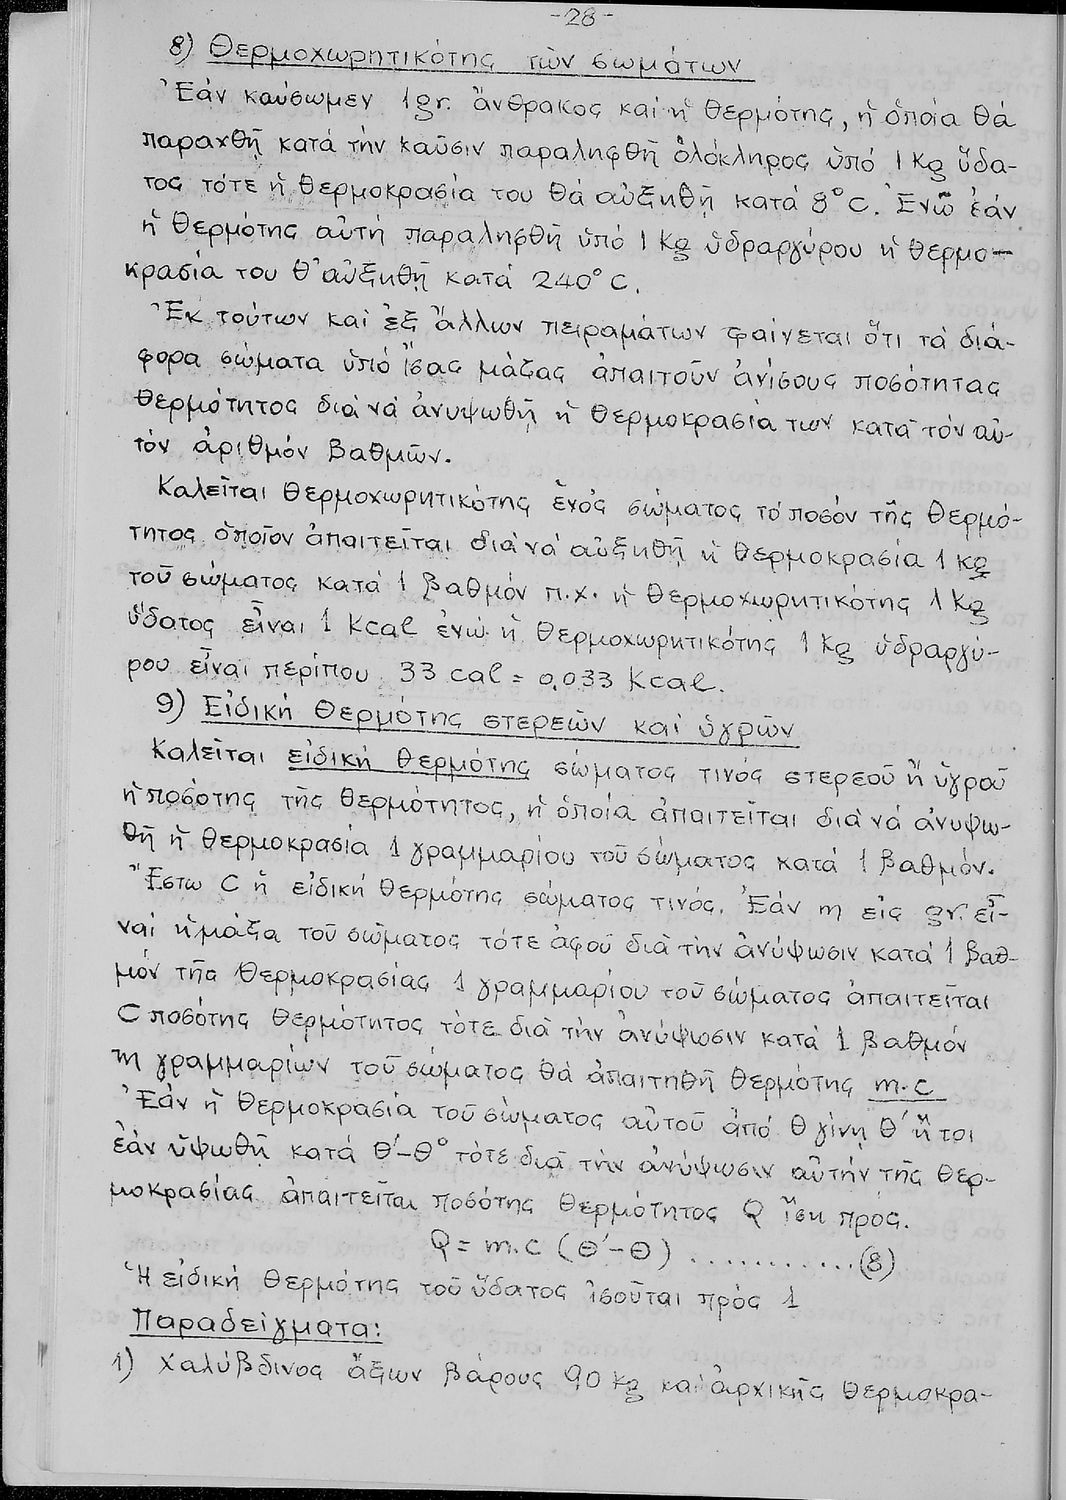 -28-
8) Θερμοχωρητικότης τῶν σωμάτων
Ἐάν καύσωμεν 1gr. ἄνθρακος καί ἡ θερμότης, ἡ ὁποία θά
παραχθῇ κατά τήν καῦσιν παραληφθῇ ὁλόκληρος ὑπό 1 Kg ὕδα-
τος τότε ἡ θερμοκρασία του θά αὐξηθῇ κατά 8°C. Ἐνῶ ἐάν
ἡ θερμότης αὐτή παραληφθῇ ὑπό 1 Kg ὑδραργύρου ἡ θερμο-
κρασία του θ' αὐξηθῇ κατά 240°C.
Ἐκ τούτων καί ἐξ ἄλλων πειραμάτων φαίνεται ὅτι τά διά-
φορα σώματα ὑπό ἴσας μάζας ἀπαιτοῦν ἀνίσους ποσότητας
θερμότητος διά νά ἀνυψωθῇ ἡ θερμοκρασία των κατά τόν αὐ-
τόν ἀριθμόν βαθμῶν.
Καλεῖται θερμοχωρητικότης ἑνός σώματος τό ποσόν τῆς θερμό-
τητος ὁποῖον ἀπαιτεῖται διά νά αὐξηθῇ ἡ θερμοκρασία 1 kg
τοῦ σώματος κατά 1 βαθμόν π.χ. ἡ θερμοχωρητικότης 1 Kg
ὕδατος εἶναι 1 Kcal ἐνῶ ἡ θερμοχωρητικότης 1 Kg ὑδραργύ-
ρου εἶναι περίπου 33 cal = 0,033 Kcal.
9) Εἰδική θερμότης στερεῶν καί ὑγρῶν
Καλεῖται εἰδική θερμότης σώματος τινός στερεοῦ ἤ ὑγροῦ
ἡ ποσότης τῆς θερμότητος, ἡ ὁποία ἀπαιτεῖται διά νά ἀνυψω-
θῇ ἡ θερμοκρασία 1 γραμμαρίου τοῦ σώματος κατά 1 βαθμόν.
Ἔστω C ἡ εἰδική θερμότης σώματος τινός. Ἐάν m εἰς gr. εἶ-
ναι ἡ μάζα τοῦ σώματος τότε ἀφοῦ διά τήν ἀνύψωσιν κατά 1 βαθ-
μόν τῆς θερμοκρασίας 1 γραμμαρίου τοῦ σώματος ἀπαιτεῖται
C ποσότης θερμότητος τότε διά τήν ἀνύψωσιν κατά 1 βαθμόν
m γραμμαρίων τοῦ σώματος θά ἀπαιτηθῇ θερμότης m.c
Ἐάν ἡ θερμοκρασία τοῦ σώματος αὐτοῦ ἀπό θ γίνῃ θ' ἤτοι
ἐάν ὑψωθῇ κατά θ'-θ° τότε διά τήν ἀνύψωσιν αὐτήν τῆς θερ-
μοκρασίας ἀπαιτεῖται ποσότης θερμότητος Q ἴση προς.
Q = m.c (θ'-θ) ............(8)
Ἡ εἰδική θερμότης τοῦ ὕδατος ἰσοῦται πρός 1
Παραδείγματα:
1) Χαλύβδινος ἄξων βάρους 90 kg καί ἀρχικῆς θερμοκρα-